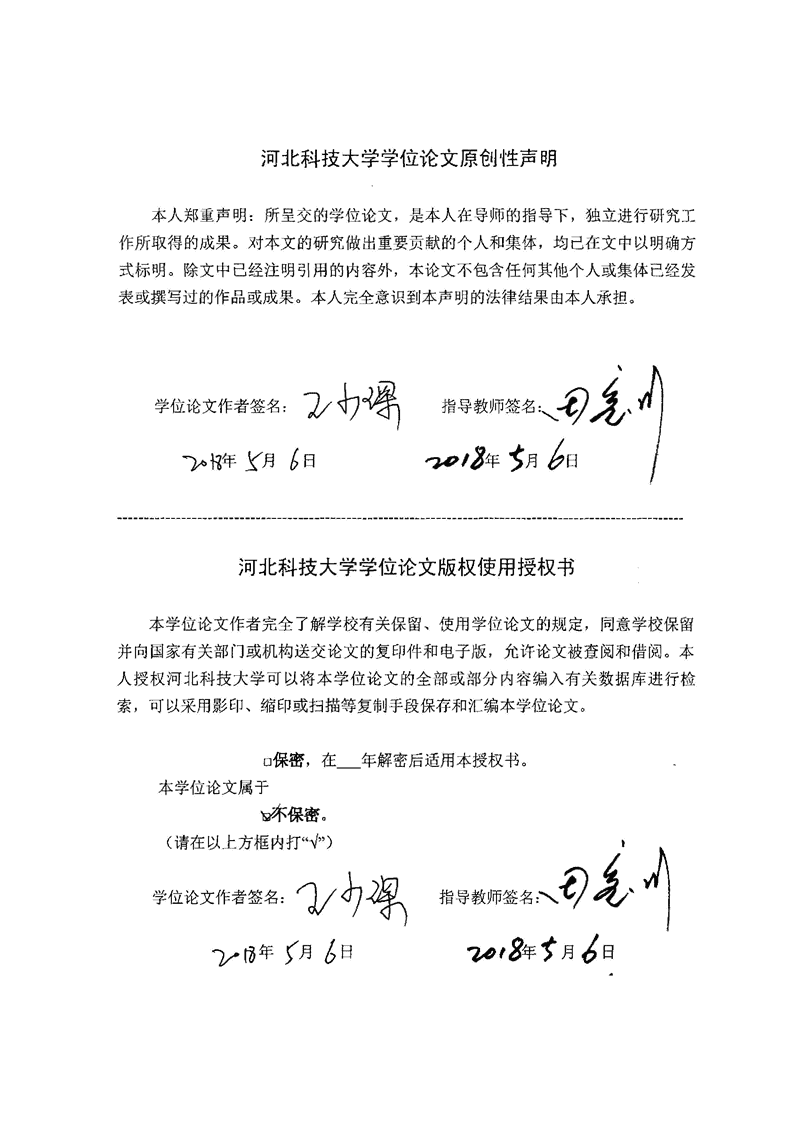 河北科技大学学位论文原创性声明
本人郑重声明：所呈交的学位论文，是本人在导师的指导下，独立进行研究工
作所取得的成果。对本文的研究做出重要贡献的个人和集体，均已在文中以明确方
式标明。除文中已经注明引用的内容外，本论文不包含任何其他个人或集体已经发
表或撰写过的作品或成果。本人完全意识到本声明的法律结果由本人承担。
学位论文作者签名： 指导教师签名：
2018年 5月 6日 2018年 5月 6日
河北科技大学学位论文版权使用授权书
本学位论文作者完全了解学校有关保留、使用学位论文的规定，同意学校保留
并向国家有关部门或机构送交论文的复印件和电子版，允许论文被查阅和借阅。本
人授权河北科技大学可以将本学位论文的全部或部分内容编入有关数据库进行检
索，可以采用影印、缩印或扫描等复制手段保存和汇编本学位论文。
□保密，在___年解密后适用本授权书。
本学位论文属于
☑不保密。
（请在以上方框内打“√”）
学位论文作者签名： 指导教师签名：
2018年 5月 6日 2018年 5月 6日